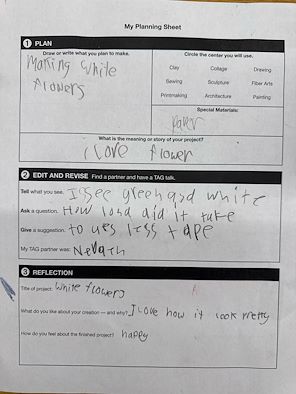 My Planning Sheet
1 PLAN
Draw or write what you plan to make.
Making white
flowers
Circle the center you will use.
Clay Collage Drawing
Sewing Sculpture Fiber Arts
Printmaking Architecture Painting
Special Materials:
Paper
What is the meaning or story of your project?
I Love flower
2 EDIT AND REVISE Find a partner and have a TAG talk.
Tell what you see. I see green and white
Ask a question. How long did it take
Give a suggestion. to ues less tape
My TAG partner was:
3 REFLECTION
Title of project: White flowers
What do you like about your creation — and why? I Love how it look pretty
How do you feel about the finished project? happy